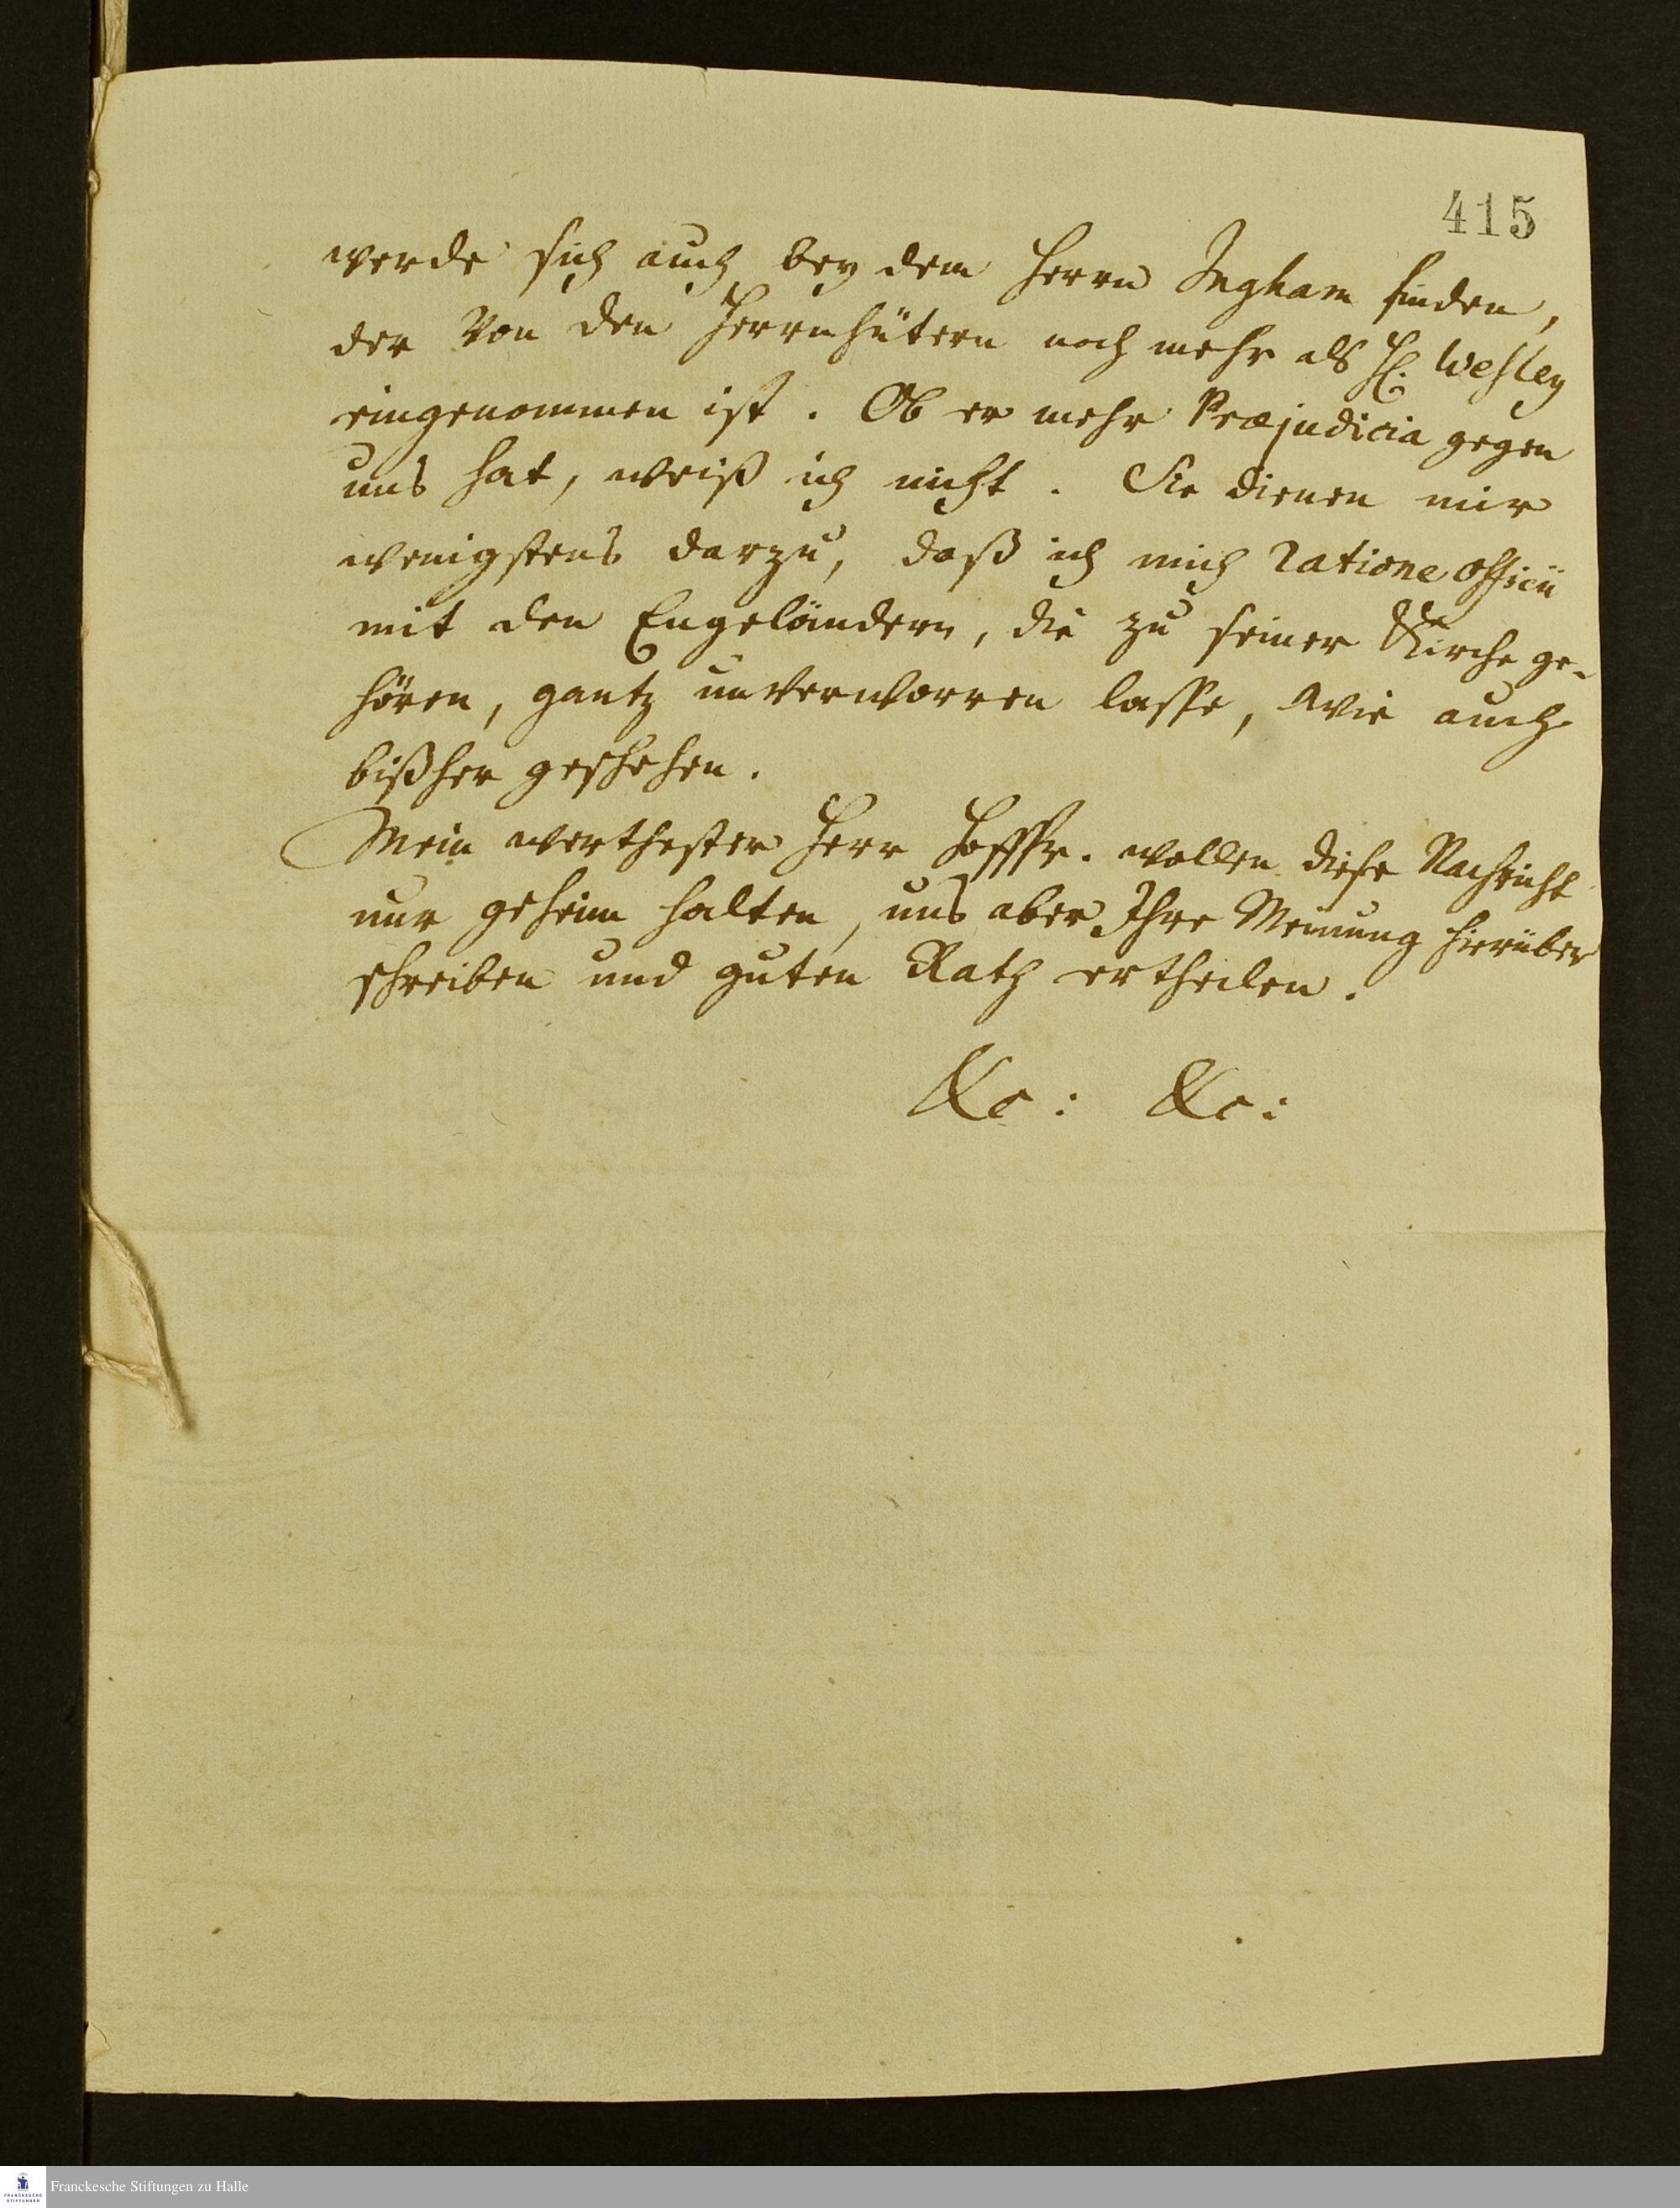 415
werde sich auch bey dem Herrn Ingham finden,
der von den Herrnhütern noch mehr als H. Wesley
eingenommen ist. Ob er mehr Præjudicia gegen
uns hat, weiß ich nicht. Sie dienen mir
wenigstens darzu, daß ich mich ratione officii
mit den Engeländern, die zu seiner Kirche ge-
hören, gantz unverworren lasse, wie auch
bißher geschehen.
Mein werthester Herr Hoffpr. wollen diese Nachricht
nur geheim halten, uns aber Ihre Meinung hierüber
schreiben und guten Rath ertheilen.
&c: &c:
FRANCKESCHE STIFTUNGEN
Franckesche Stiftungen zu Halle